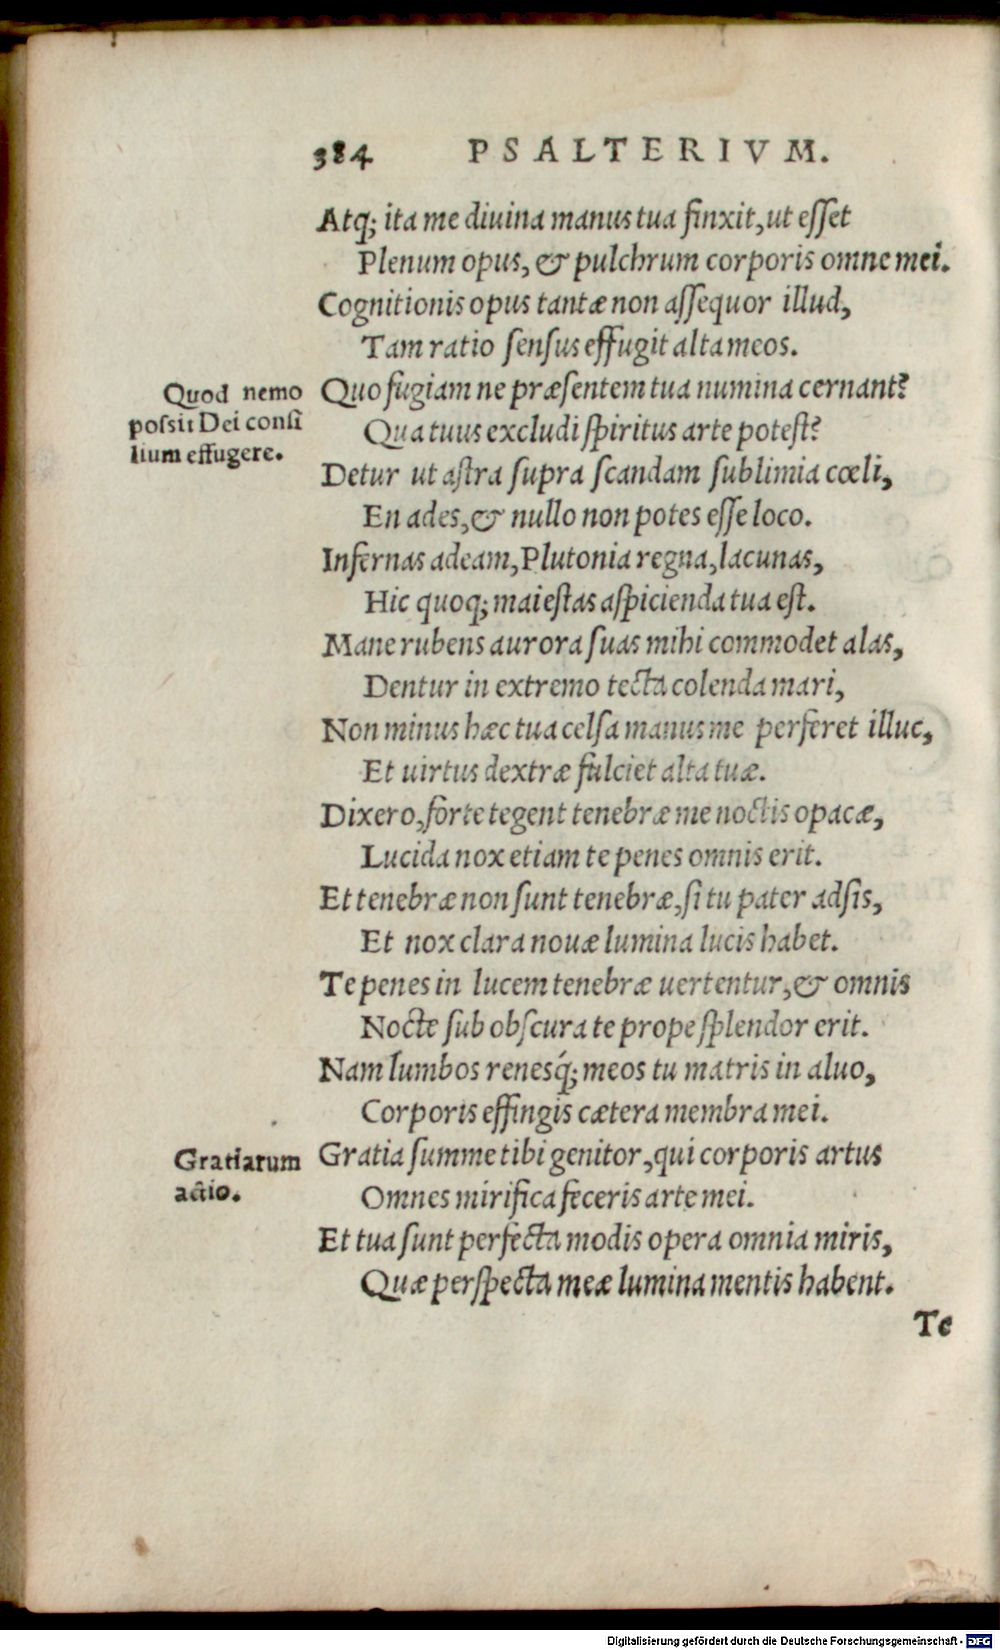 384 PSALTERIVM.
Atq; ita me diuina manus tua finxit, ut esset
Plenum opus, & pulchrum corporis omne mei.
Cognitionis opus tantæ non assequor illud,
Tam ratio sensus effugit alta meos.
Quod nemo
possit Dei consi
lium effugere.
Quo fugiam ne præsentem tua numina cernant?
Qua tuus excludi spiritus arte potest?
Detur ut astra supra scandam sublimia cœli,
En ades, & nullo non potes esse loco.
Infernas adeam, Plutonia regna, lacunas,
Hic quoq; maiestas aspicienda tua est.
Mane rubens aurora suas mihi commodet alas,
Dentur in extremo tecta colenda mari,
Non minus hæc tua celsa manus me perferet illuc,
Et uirtus dextræ fulciet alta tuæ.
Dixero, forte tegent tenebræ me noctis opacæ,
Lucida nox etiam te penes omnis erit.
Et tenebræ non sunt tenebræ, si tu pater adsis,
Et nox clara nouæ lumina lucis habet.
Te penes in lucem tenebræ uertentur, & omnis
Nocte sub obscura te prope splendor erit.
Nam lumbos renesq́; meos tu matris in aluo,
Corporis effingis cætera membra mei.
Gratiarum
actio.
Gratia summe tibi genitor, qui corporis artus
Omnes mirifica feceris arte mei.
Et tua sunt perfecta modis opera omnia miris,
Quæ perspecta meæ lumina mentis habent.
Te
Digitalisierung gefördert durch die Deutsche Forschungsgemeinschaft - DFG